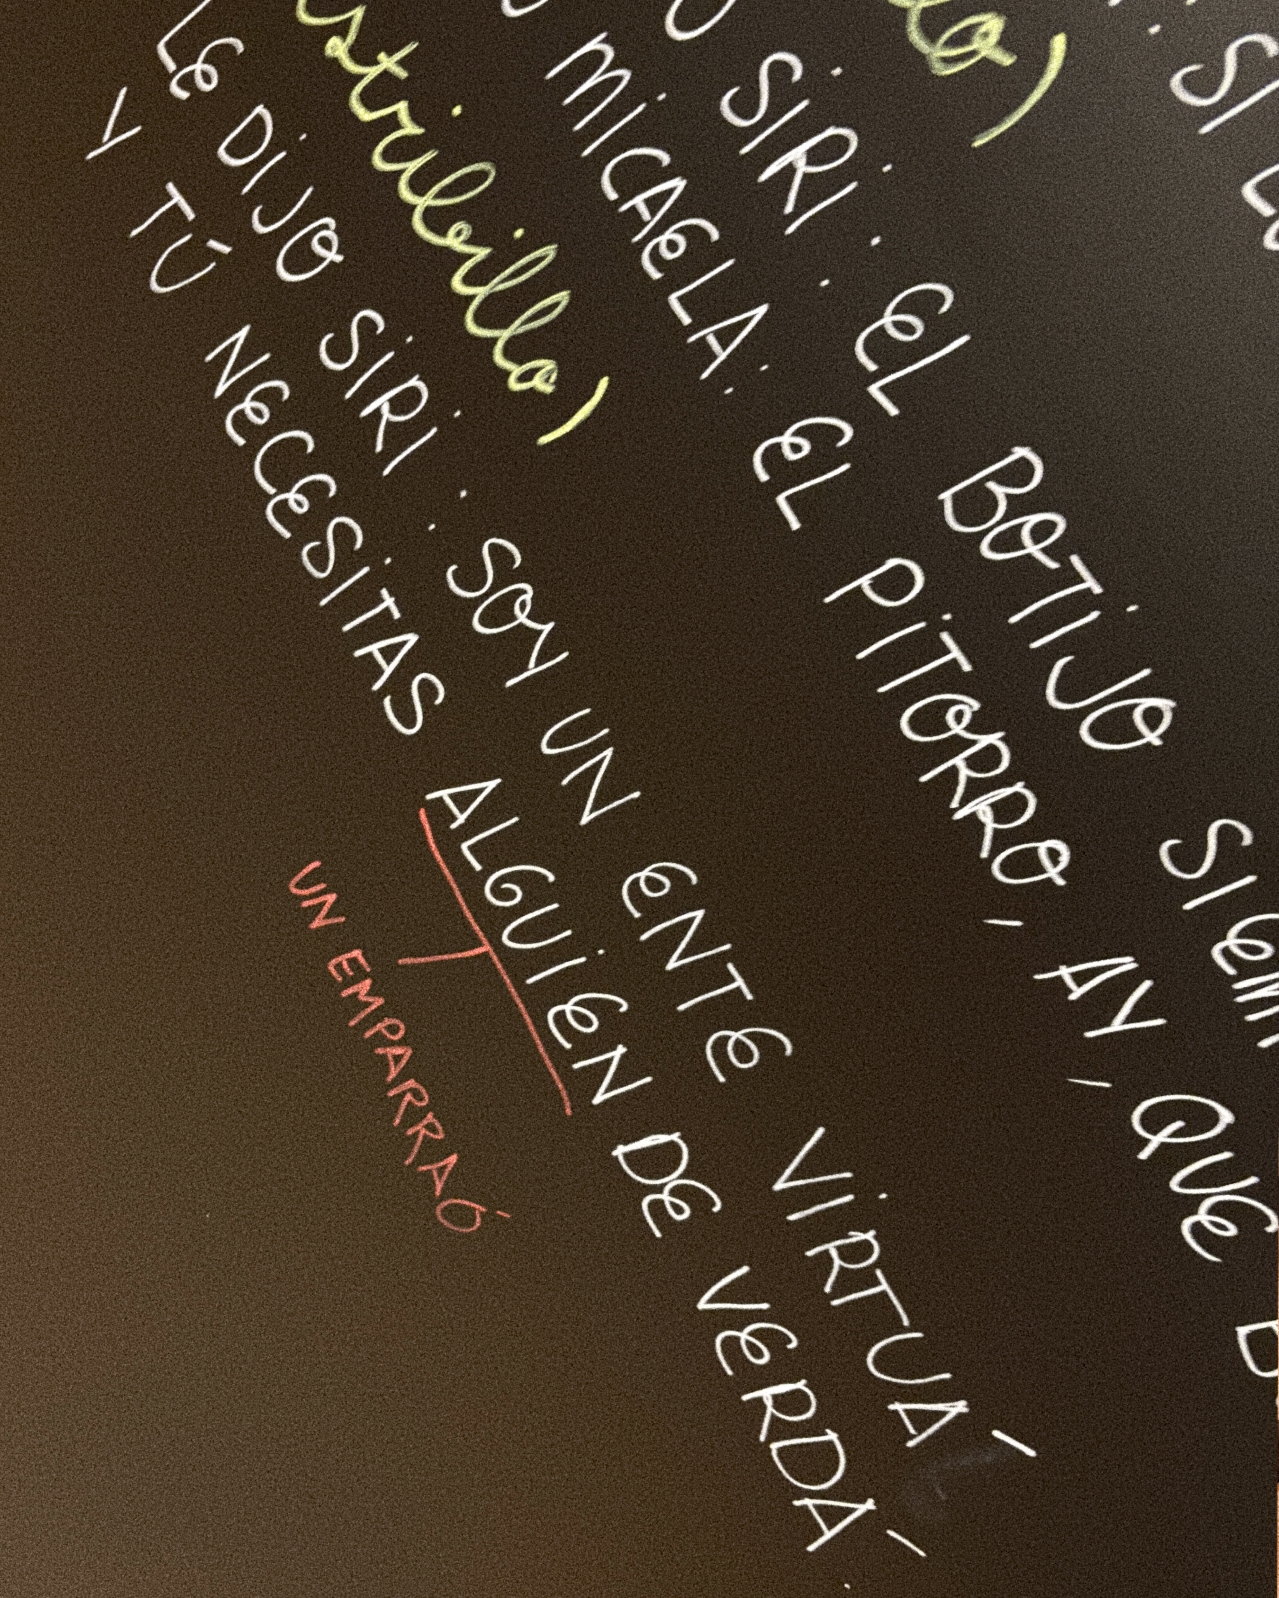 : SI
SIRI: EL BOTIJO SIEM
MICAELA: EL PITORRO, AY, QUE
estribillo)
LE DIJO SIRI: SOY UN ENTE VIRTUÁ
Y TÚ NECESITAS ALGUIEN DE VERDÁ
UN EMPARRAÓ